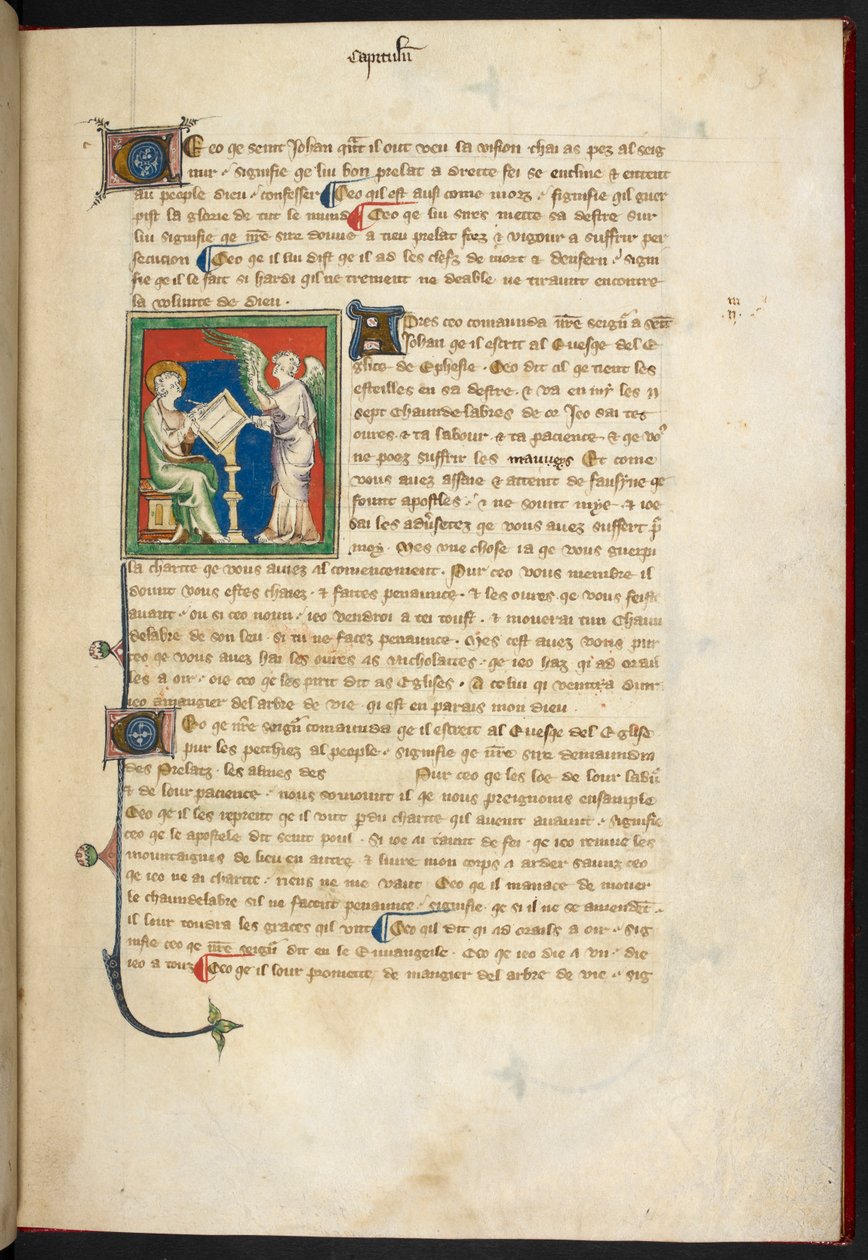 Capitulū
Ceo qe seint Johan qāt il out veu la vision chai as pez al seig
nur . signifie qe lui bon prelat a dreite fei se encline & entent
au people dieu . confesser Ceo qil est ausi come morz . signifie qil guer
pist la glorie de tut le mund Ceo qe lui sires mette sa destre sur
lui signifie qe nr̄e sire doune a tieu prelat forz & vigour a suffrir per
secucion Ceo qe il lui dist qe il ad les clefs de mort & denfern . signi
fie qe il le fait si hardi qil ne crement ne deable ne tiraunt encontre
la volunte de dieu .
Apres ceo comaunda nr̄e seignr̄ a seīt
Johan qe il escrit al Euesqe del E
glise de Ephesie . Ceo dit cil qe tient les
esteilles en sa destre . & va en my les
sept Chaundelabres de or Jeo sai tes
oures . & ta labour . & ta pacience & qe vo⁹
ne poez suffrir les mauueys Et come
vous auez assaie & atteint de fausyne qe
fount apostles . & ne sount mye . & ioe
sai les adūsetez qe vous auez suffert p̄
mey . Mes vne chose ia qe vous guerpi
la charite qe vous auiez al comencement . Pur ceo vous membre il
dount vous estes chaiez . & faites penaunce . & les oures qe vous feist
auant . ou si ceo noun . ieo vendroi a tei toust . & mouerai tun Chaun
delabre de son leu . si tu ne facez penaunce . Mes cest auez vous pur
ceo qe vous auez hai les oures as Nicholaites . qe ieo haz qi ad orail
les a oir . oie ceo qe lespirit dit as Eglises . A celui qi ventra durr
ieo a mangier del arbre de vie . qi est en parais mon dieu .
Ceo qe nr̄e seignr̄ comaunda qe il escreit al Euesqe del Eglise
pur les pecchiez al people . signifie qe nr̄e sire demaundra
des Prelatz . les almes des Pur ceo qe les loe de lour labūr
& de lour pacience . nous somount il qe nous preignoms ensample
Ceo qe il les reprent qe il vnt pdu charite qil aueint auaunt . signifie
ceo qe le apostele dit seint poul . Si ioe ai taunt de fei . qe ieo remue les
mountaignes de lieu en autre . & liure mon corps a arder saunz ceo
qe ieo ne ai charite . riens ne me vaut Ceo qe il manace de mouer
le chaundelabre sil ne facent penaunce . signifie . qe si il ne se amendēt .
il lour toudra les graces qil vnt Ceo qil dit qi ad orails a oir . sig
nifie ceo qe nr̄e seignr̄ dit en le Euuangeile . Ceo qe ieo die a vn . die
ieo a touz Ceo qe il lour promette de mangier del arbre de vie . sig